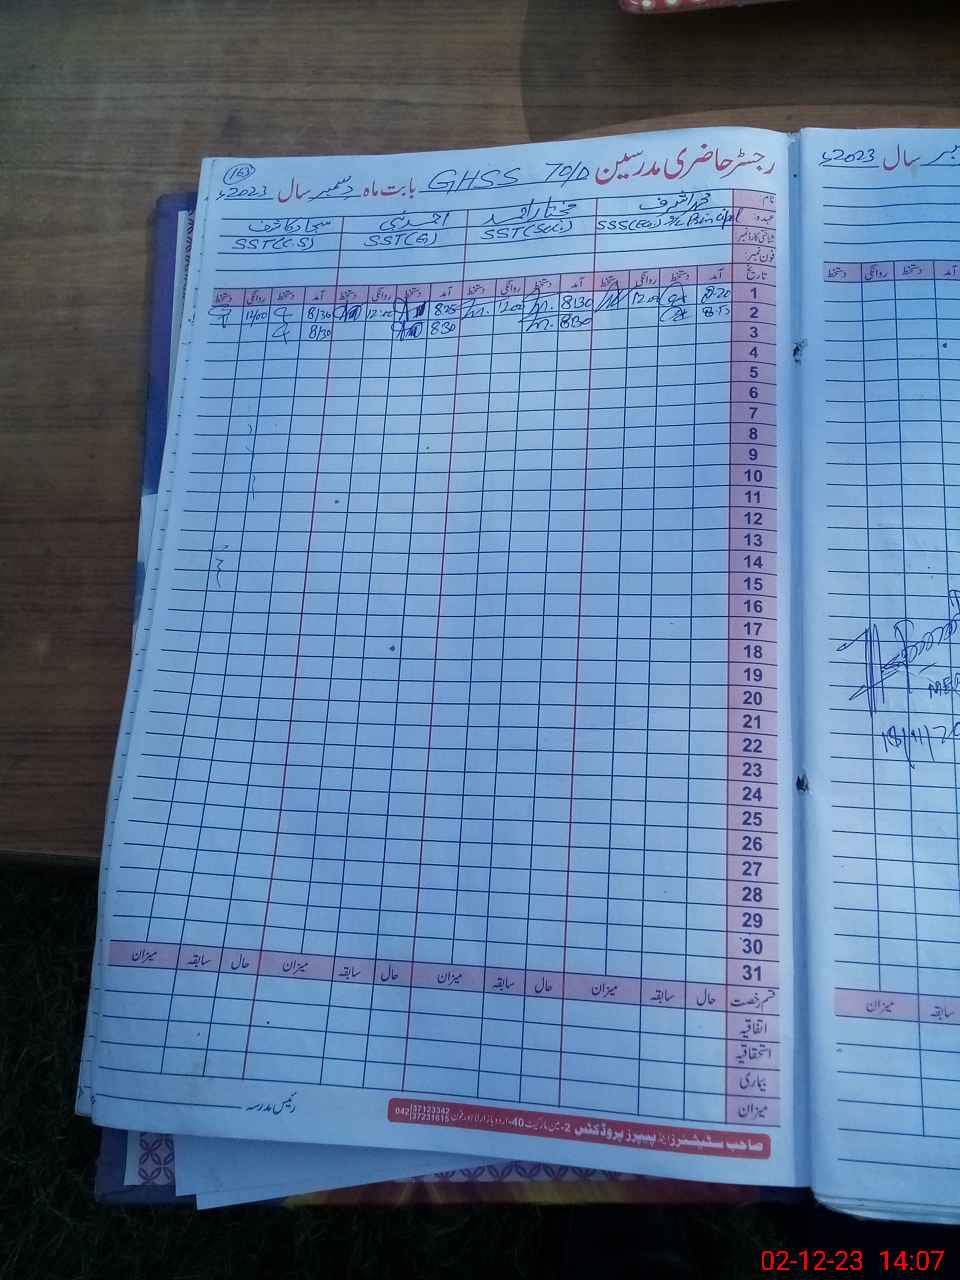 163
رجسٹر حاضری مدرسین GHSS 70/D بابت ماہ دسمبر سال 2023ء
نام: محمد اشرف مختار احمد احمد
عہدہ: SSS(Eco) / Principal SST(Sci) SST(G) SST(C.S)
شناختی کارڈ نمبر:
فون نمبر:
تاریخ آمد دستخط روانگی دستخط آمد دستخط روانگی دستخط آمد دستخط روانگی دستخط آمد دستخط روانگی دستخط
1 8:20 12:00 8:30 12:00 8:25 12:00 8/30 12/00
2 8:30 8:30 8/30
3
4
5
6
7
8
9
10
11
12
13
14
15
16
17
18
19
20
21
22
23
24
25
26
27
28
29
30
31
قسم رخصت حال سابقہ میزان حال سابقہ میزان حال سابقہ میزان حال سابقہ میزان
اتفاقیہ
استحقاقیہ
بیماری
میزان
رئیس مدرسہ
صاحب سٹیشنرز اینڈ پیپرز پروڈکٹس 2-مین مارکیٹ 40-اردو بازار لاہور فون 042 37123342 37231615
سال 2023ء
آمد دستخط روانگی دستخط
18/11/20
سابقہ میزان
02-12-23 14:07